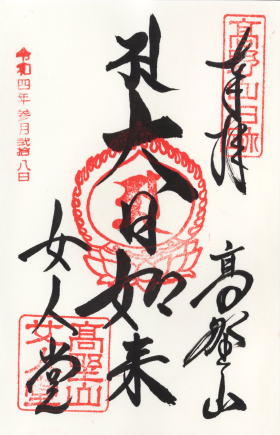 奉拝
高野山
大日如来
女人堂
令和四年参月弐拾八日
高野山
女人堂